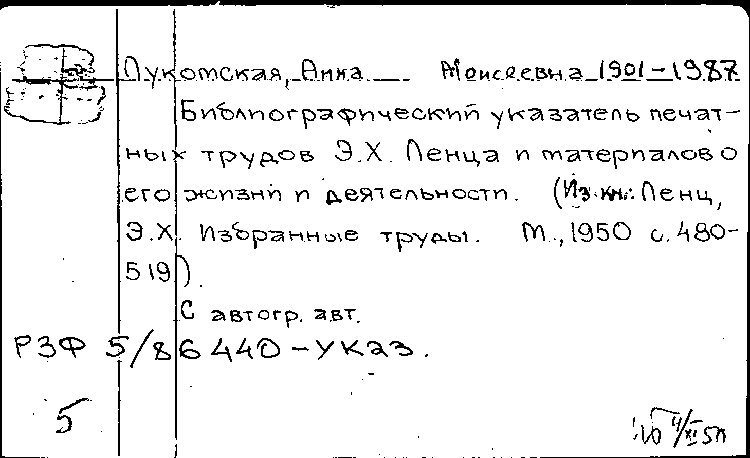 Лукотская, Анна Моисеевна 1901-1987
Библиографический указатель печат-
ных трудов Э.Х. Ленца и материалов о
его жизни и деятельности. (Из кн.: Ленц,
Э.Х. Избранные труды. М., 1950 с. 480-
519).
С автогр. авт.
РЗФ 5/86440-указ.
5